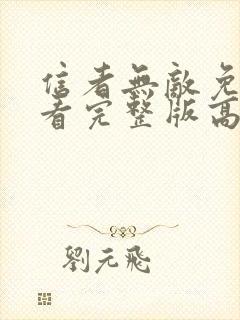 信者無敵免
看完整版高
劉元飛